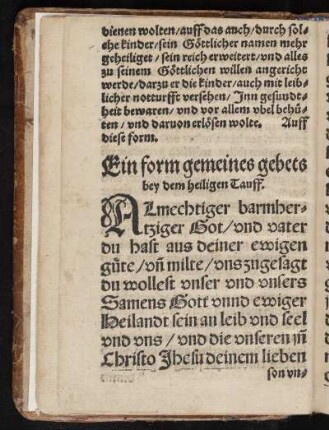 dienen wolten/auff das auch/durch sol-
che kinder/sein Göttlicher namen mehr
geheiliget/sein reich erweitert/vnd alles
zu seinem Göttlichen willen angericht
werde/darzu er die kinder/auch mit leib-
licher notturfft versehen/Jnn gesundt-
heit bewaren/vnd vor allem vbel behü-
ten/vnd daruon erlösen wolte. Auff
diese form.
Ein form gemeines gebets
bey dem heiligen Tauff.
ALmechtiger barmher-
tziger Got/vnd vater
du hast aus deiner ewigen
güte/vñ milte/vnszugesagt
du wollest vnser vnd vnsers
Samens Gott vnnd ewiger
Heilandt sein an leib vnd seel
vnd vns/vnd die vnseren jñ
Christo Jhesu deinem lieben
son vn-